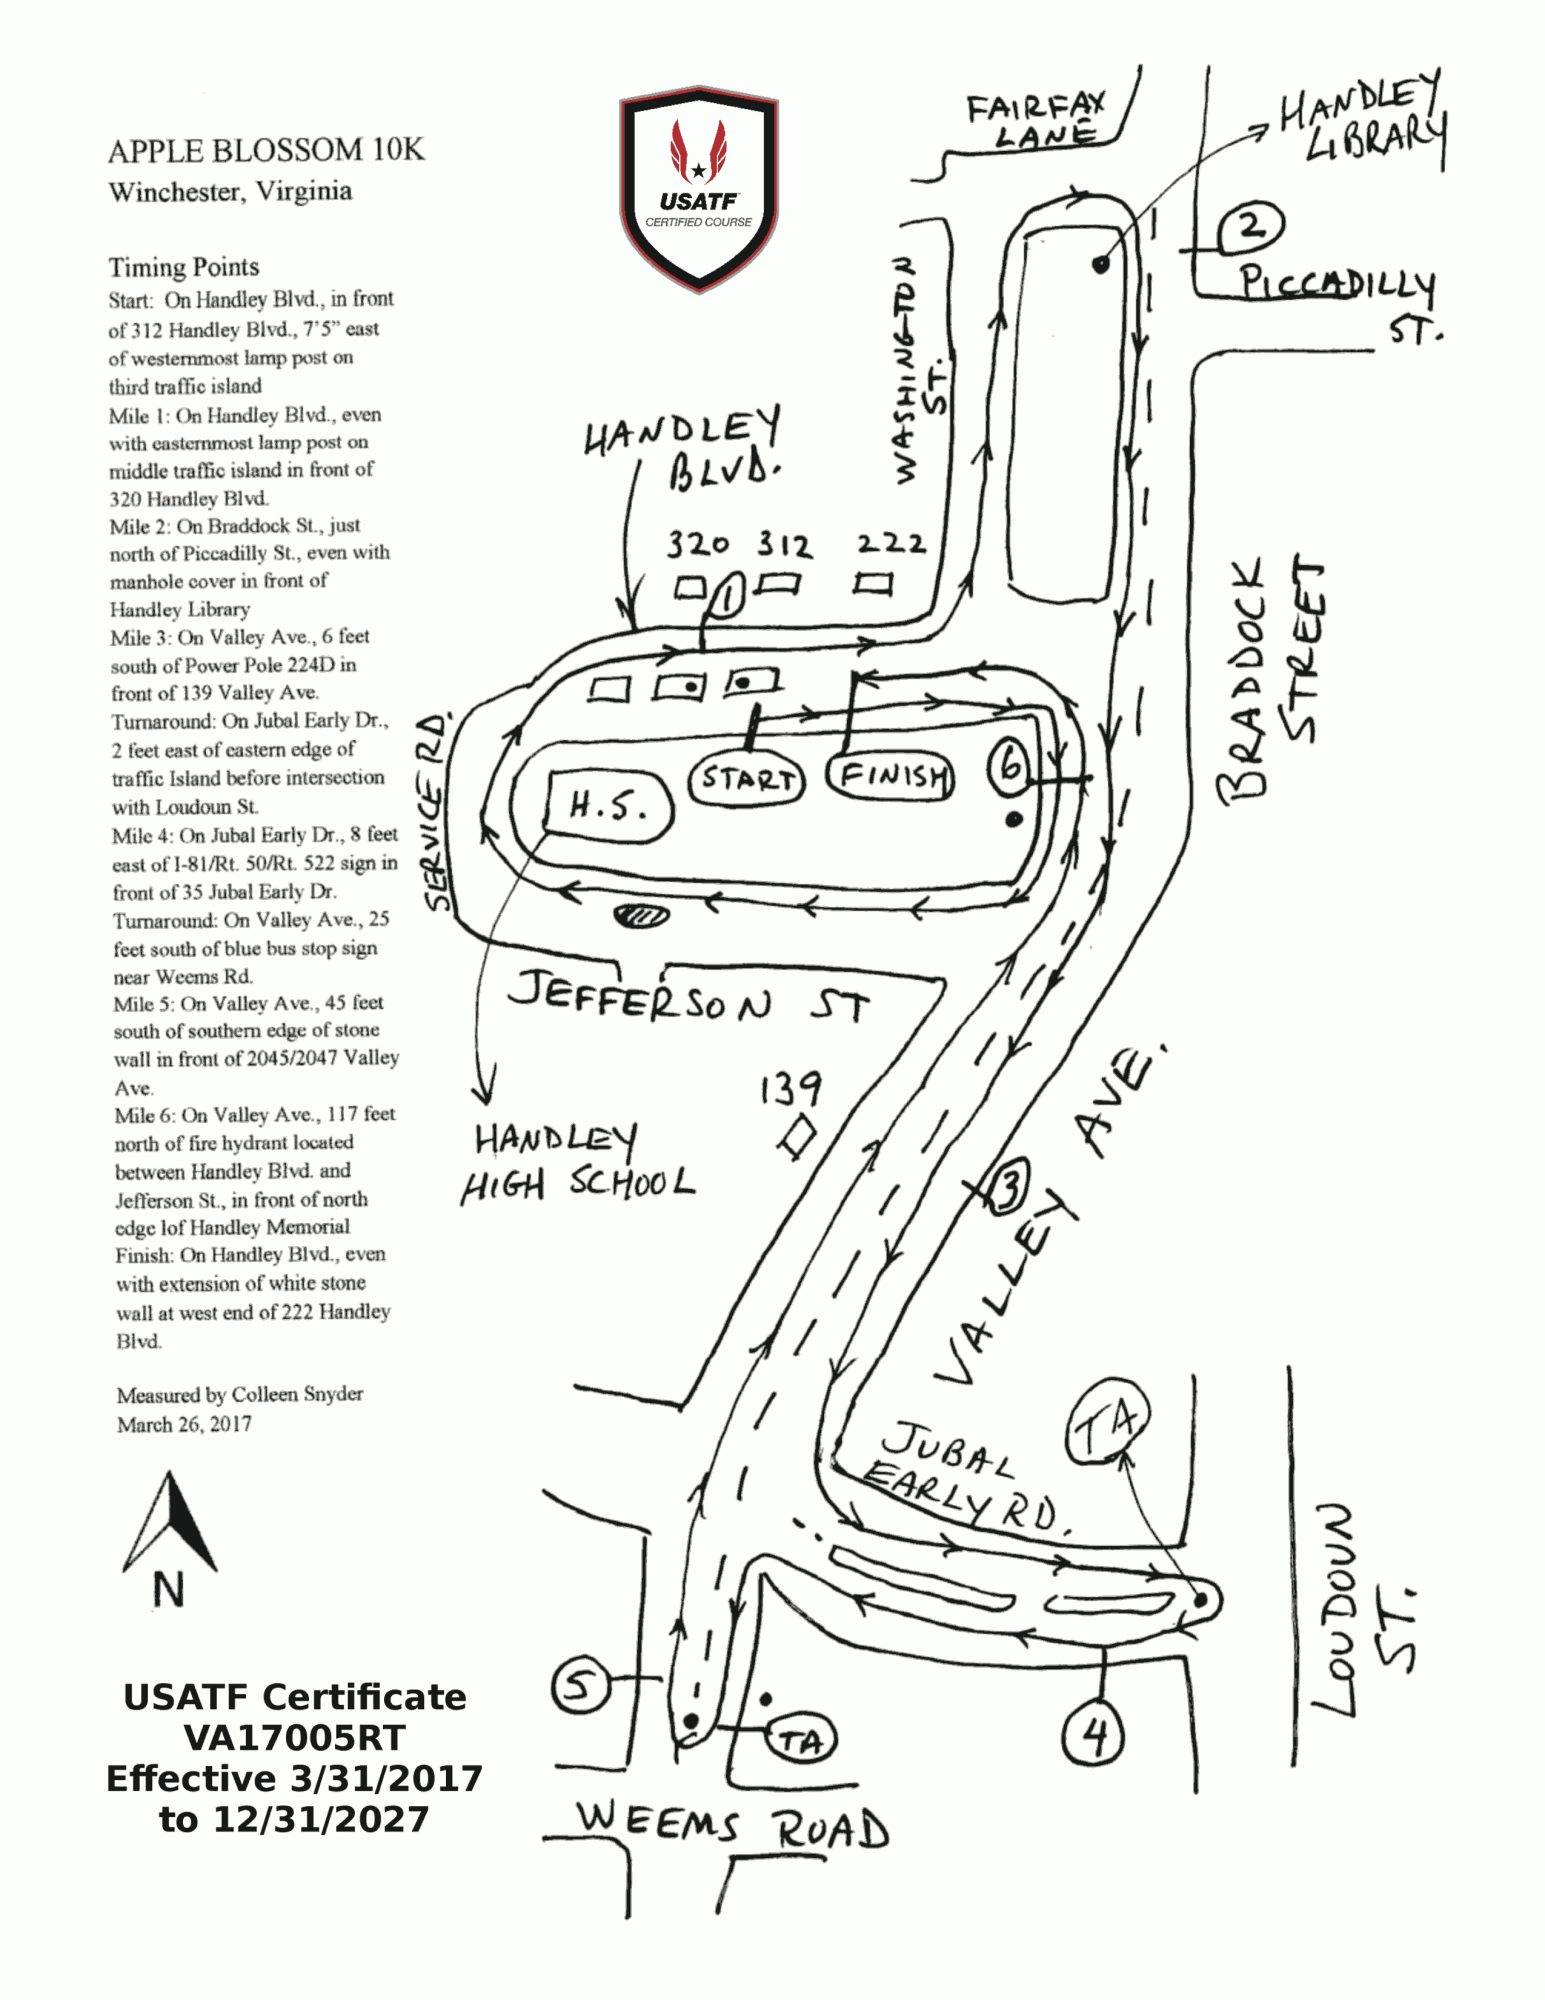 APPLE BLOSSOM 10K
Winchester, Virginia
Timing Points
Start: On Handley Blvd., in front
of 312 Handley Blvd., 7'5" east
of westernmost lamp post on
third traffic island
Mile 1: On Handley Blvd., even
with easternmost lamp post on
middle traffic island in front of
320 Handley Blvd.
Mile 2: On Braddock St., just
north of Piccadilly St., even with
manhole cover in front of
Handley Library
Mile 3: On Valley Ave., 6 feet
south of Power Pole 224D in
front of 139 Valley Ave.
Turnaround: On Jubal Early Dr.,
2 feet east of eastern edge of
traffic Island before intersection
with Loudoun St.
Mile 4: On Jubal Early Dr., 8 feet
east of I-81/Rt. 50/Rt. 522 sign in
front of 35 Jubal Early Dr.
Turnaround: On Valley Ave., 25
feet south of blue bus stop sign
near Weems Rd.
Mile 5: On Valley Ave., 45 feet
south of southern edge of stone
wall in front of 2045/2047 Valley
Ave.
Mile 6: On Valley Ave., 117 feet
north of fire hydrant located
between Handley Blvd. and
Jefferson St., in front of north
edge lof Handley Memorial
Finish: On Handley Blvd., even
with extension of white stone
wall at west end of 222 Handley
Blvd.
Measured by Colleen Snyder
March 26, 2017
N
USATF Certificate
VA17005RT
Effective 3/31/2017
to 12/31/2027
USATF
CERTIFIED COURSE
FAIRFAX
LANE
HANDLEY
LIBRARY
2
PICCADILLY
ST.
WASHINGTON
ST.
HANDLEY
BLVD.
320 312 222
1
BRADDOCK
STREET
SERVICE RD.
START
FINISH
6
H.S.
JEFFERSON ST
139
HANDLEY
HIGH SCHOOL
3
VALLEY AVE.
TA
JUBAL
EARLY RD.
LOUDOUN
ST.
5
TA
4
WEEMS ROAD